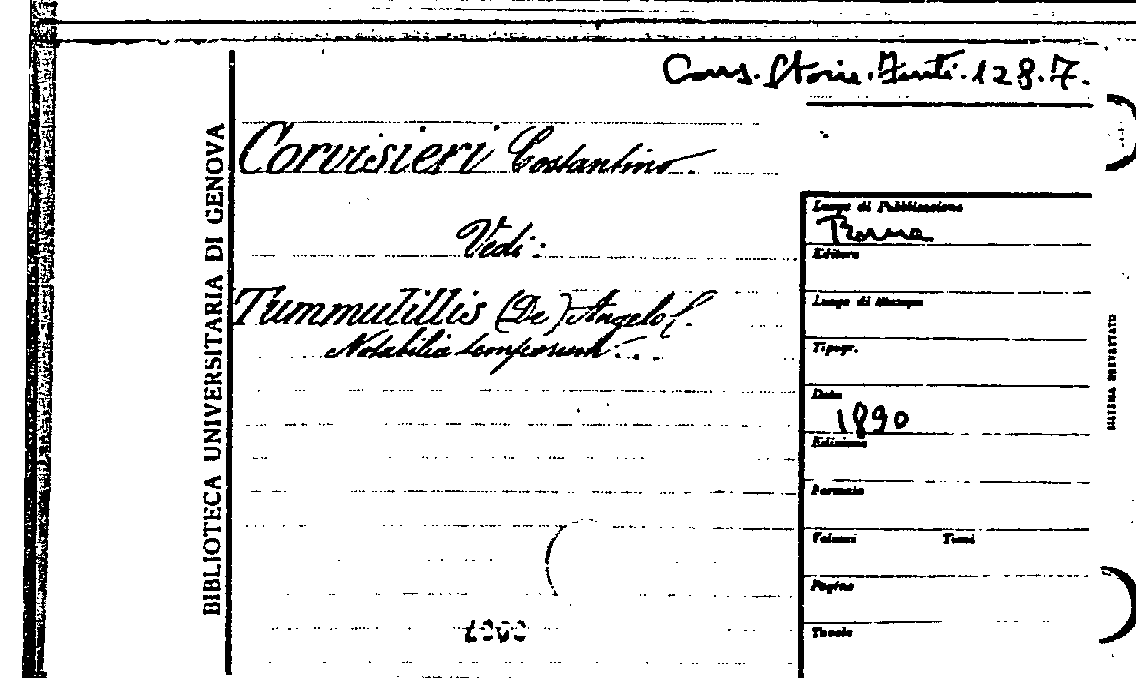 Cons. Storia. Fonti. 128.7.
BIBLIOTECA UNIVERSITARIA DI GENOVA
Corvisieri Costantino.
Vedi:
Tummulillis (De) Angelo
Notabilia temporum...
Luogo di Pubblicazione
Roma
Editore
Luogo di Stampa
Tipogr.
Data
1890
Edizione
Formato
Volumi Tomi
Pagine
Tavole